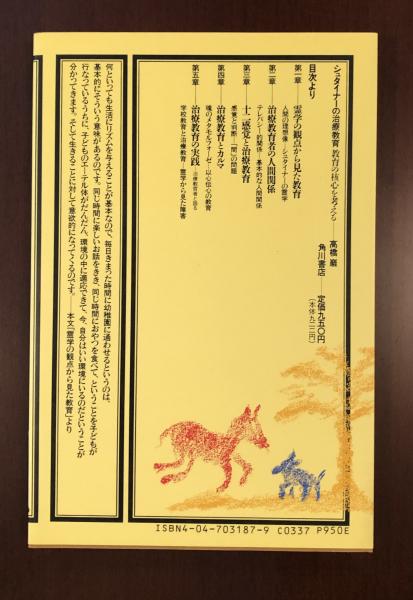 シュタイナーの治療教育 教育の核心を考える——高橋 巖
角川書店——定価九五〇円
(本体九二二円)
目次より
第一章——霊学の観点から見た教育
人間の理想像・シュタイナーの霊学
第二章——治療教育者の人間関係
テレパシー的関係・基本的な人間関係
第三章——十二感覚と治療教育
感覚と判断・「間」の問題
第四章——治療教育とカルマ
魂のメタモルフォーゼ・以心伝心の教育
第五章——治療教育の実践——治療教育者と語る
学校教育と治療教育——霊学から見た障害
何といっても生活にリズムを与えることが基本なので、毎日きまった時間に幼稚園に通わせるというのは、
基本的にそういう意味があるのです。同じ時間に楽しいお話をきき、同じ時間におやつを食べて、ということを子どもが
行なっているうちに、子どものエーテル体がだんだん、環境の中に適応できて、今、自分はいい環境にいるのだということが
分かってきます。そして生きることに対して意欲的になってくるのです。——本文「霊学の観点から見た教育」より
ISBN4-04-703187-9 C0337 P950E